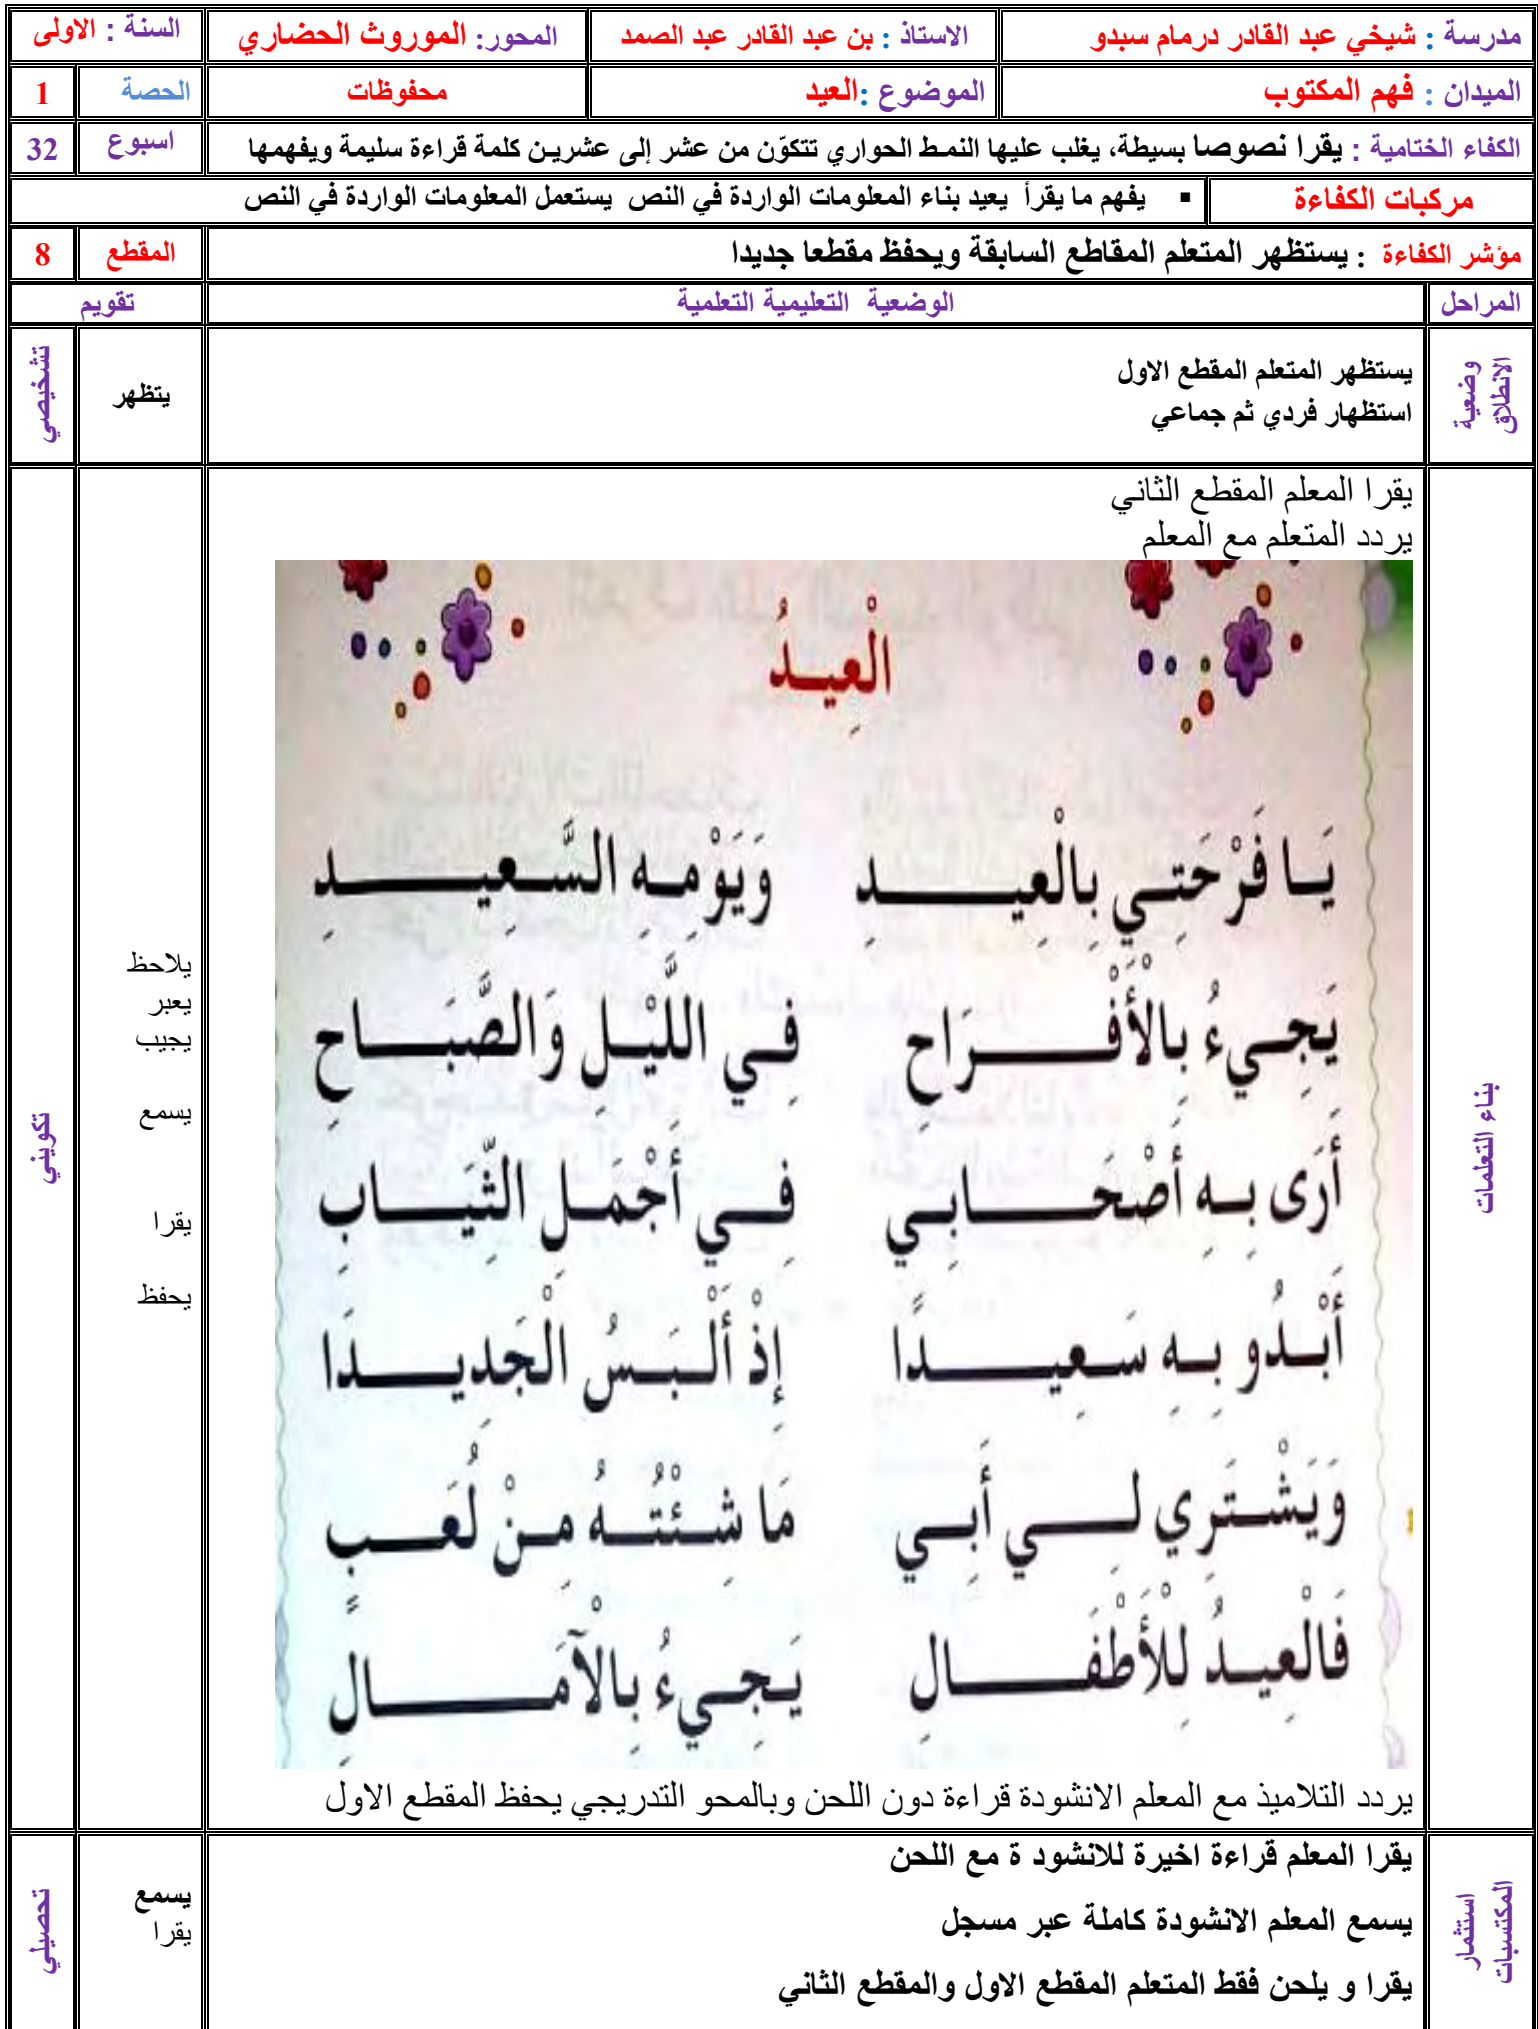 مدرسة : شيخي عبد القادر درمام سبدو الاستاذ : بن عبد القادر عبد الصمد المحور: الموروث الحضاري السنة : الاولى
الميدان : فهم المكتوب الموضوع :العيد محفوظات الحصة 1
الكفاء الختامية : يقرا نصوصا بسيطة، يغلب عليها النمط الحواري تتكوّن من عشر إلى عشرين كلمة قراءة سليمة ويفهمها اسبوع 32
مركبات الكفاءة ▪ يفهم ما يقرأ يعيد بناء المعلومات الواردة في النص يستعمل المعلومات الواردة في النص
مؤشر الكفاءة : يستظهر المتعلم المقاطع السابقة ويحفظ مقطعا جديدا المقطع 8
المراحل الوضعية التعليمية التعلمية تقويم
وضعية
الانطلاق
يستظهر المتعلم المقطع الاول
استظهار فردي ثم جماعي
يتظهر
تشخيصي
بناء التعلمات
يقرا المعلم المقطع الثاني
يردد المتعلم مع المعلم
الْعِيـدُ
يَـا فَرْحَتِـي بِالْعِيــدِ وَيَوْمِـهِ السَّـعِيــدِ
يَجِـيءُ بِالْأَفْــرَاحِ فِـي اللَّيْـلِ وَالصَّبَــاحِ
أَرَى بِـهِ أَصْحَــابِـي فِـي أَجْمَـلِ الثِّيَــابِ
أَبْـدُو بِـهِ سَـعِيــدًا إِذْ أَلْـبَـسُ الْجَدِيــدَا
وَيَشْـتَرِي لِــي أَبِـي مَا شِـئْتُـهُ مِـنْ لُعَــبٍ
فَالْعِيـدُ لِلْأَطْفَــالِ يَـجِـيءُ بِالْآمَــالِ
يردد التلاميذ مع المعلم الانشودة قراءة دون اللحن وبالمحو التدريجي يحفظ المقطع الاول
يلاحظ
يعبر
يجيب
يسمع
يقرا
يحفظ
تكويني
استثمار
المكتسبات
يقرا المعلم قراءة اخيرة للانشود ة مع اللحن
يسمع المعلم الانشودة كاملة عبر مسجل
يقرا و يلحن فقط المتعلم المقطع الاول والمقطع الثاني
يسمع
يقرا
تحصيلي